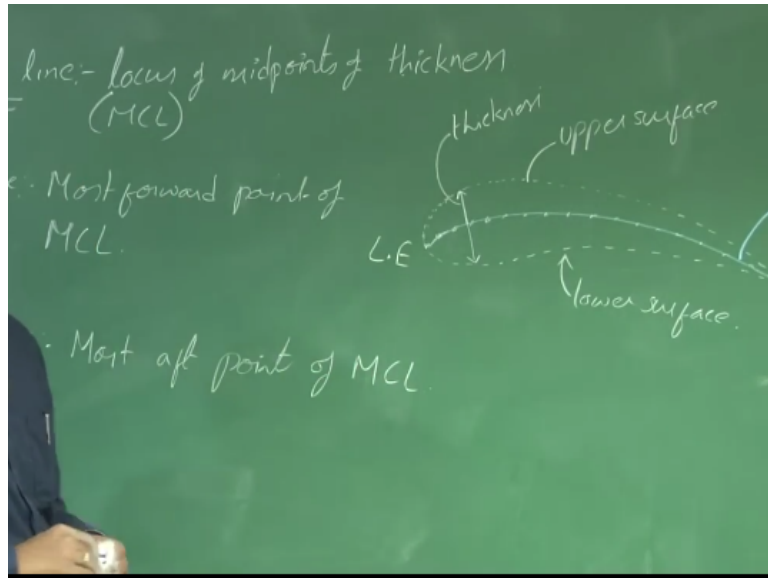 line:- locus of midpoints of thickness
(MCL)
Most forward point of
MCL.
Most aft point of MCL.
thickness
upper surface
L.E
lower surface.